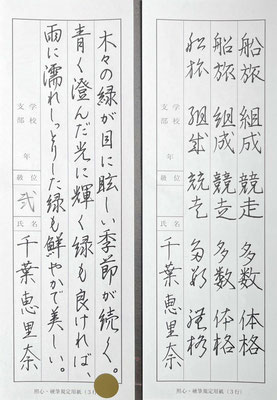 船旅 組成 競走 多数 体格
船旅 組成 競走 多数 体格
船旅 組成 競走 多数 體格
学校
支部
年
級位
氏名
千葉恵里奈
照心・硬筆規定用紙(3行)
木々の緑が目に眩しい季節が続く。
青く澄んだ光に輝く緑も良ければ、
雨に濡れしっとりした緑も鮮やかで美しい。
学校
支部
年
級位
弐
氏名
千葉恵里奈
照心・硬筆規定用紙(3行)